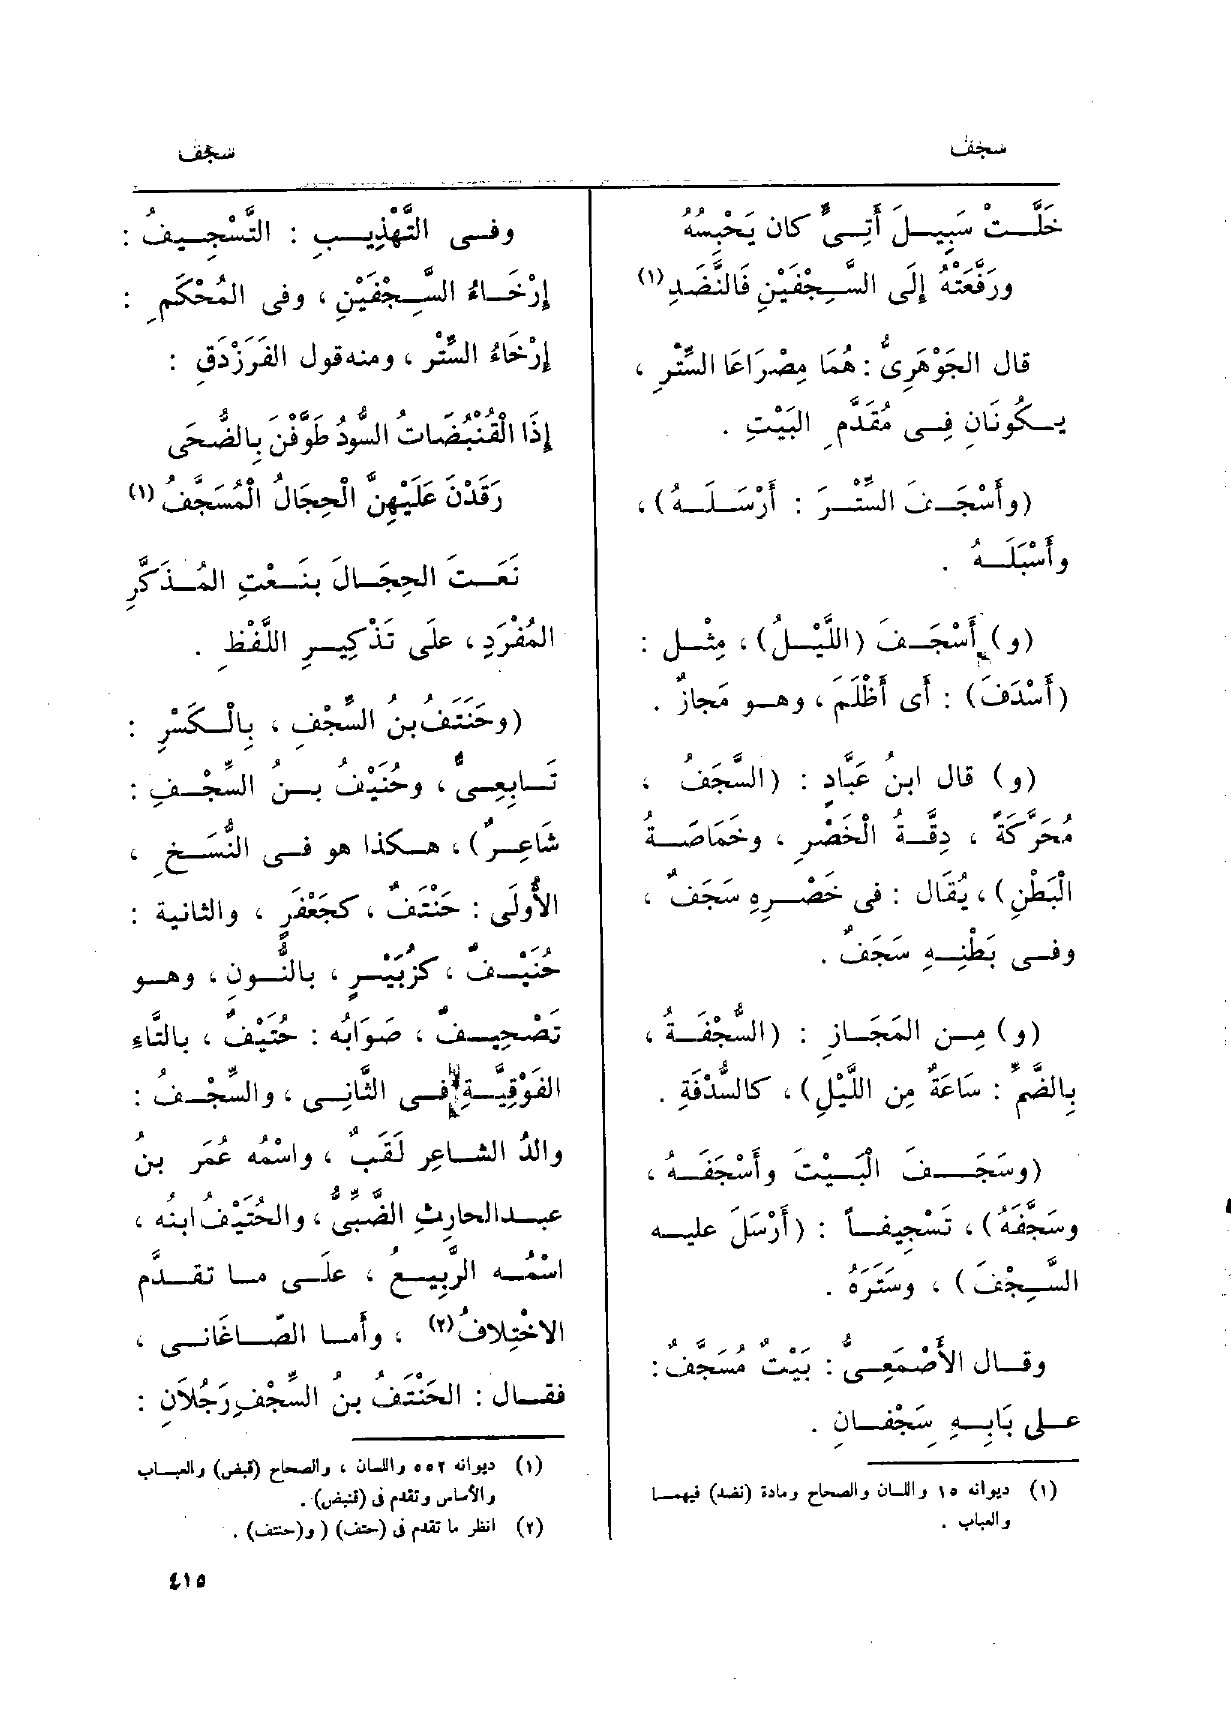 سجف
سجف
خَلَّتْ سَبِيلَ أَتِىٍّ كان يَحْبِسُهُ
ورَفَّعَتْهُ إِلَى السِّجْفَيْنِ فَالنَّضَدِ (١)
قال الجَوْهَرِىُّ : هُمَا مِصْرَاعَا السِّتْرِ ،
يكُونَانِ فِى مُقَدَّمِ البَيْتِ .
(وأَسْجَفَ السِّتْرَ : أَرْسَلَهُ) ،
وأَسْبَلَهُ .
(و) أَسْجَفَ (اللَّيْلُ) ، مِثْل :
(أَسْدَفَ) : أَى أَظْلَمَ ، وهو مَجازٌ .
(و) قال ابنُ عَبَّادٍ : (السَّجَفُ ،
مُحَرَّكَةً ، دِقَّةُ الْخَصْرِ ، وخَمَاصَةُ
الْبَطْنِ) ، يُقَال : فى خَصْرِهِ سَجَفٌ ،
وفى بَطْنِهِ سَجَفٌ .
(و) مِن المَجَازِ : (السُّجْفَةُ ،
بِالضَّمِّ : سَاعَةٌ مِن اللَّيْلِ) ، كالسُّدْفَةِ .
(وسَجَفَ الْبَيْتَ وأَسْجَفَهُ ،
وسَجَّفَهُ) ، تَسْجِيفاً : (أَرْسَلَ عليه
السِّجْفَ) ، وسَتَرَهُ .
وقال الأَصْمَعِىُّ : بَيْتٌ مُسَجَّفٌ :
على بَابِهِ سَِجْفانِ .
(١) ديوانه ١٥ واللسان والصحاح ومادة (نضد) فيهما
والعباب .
وفى التَّهْذِيبِ : التَّسْجِيفُ :
إِرْخَاءُ السَِّجْفَيْنِ ، وفى المُحْكَمِ :
إِرْخَاءُ السِّتْر ، ومنه قول الفَرَزْدَقِ :
إِذَا الْقُنْبُضَاتُ السُّودُ طَوَّفْنَ بِالضُّحَى
رَقَدْنَ عَلَيْهِنَّ الْحِجَالُ الْمُسَجَّفُ (١)
نَعَتَ الحِجَالَ بنَعْتِ المُذَكَّرِ
المُفْرَدِ ، علَى تَذْكِيرِ اللَّفْظِ .
(وحَنْتَفُ بنُ السِّجْفِ ، بِالْكَسْرِ :
تَابِعِىٌّ ، وحُنَيْفُ بنُ السِّجْفِ :
شَاعِرٌ) ، هكذا هو فى النُّسَخِ ،
الأُولَى : حَنْتَفٌ ، كجَعْفَرٍ ، والثانية :
حُنَيْفٌ ، كزُبَيْرٍ ، بالنُّونِ ، وهو
تَصْحِيفٌ ، صَوَابُه : حُتَيْفٌ ، بالتَّاءِ
الفَوْقِيَّةِ فى الثَّانِى ، والسِّجْفُ :
والدُ الشاعِر لَقَبٌ ، واسْمُه عُمَر بنُ
عبد الحارِثِ الضَّبِّىُّ ، والحُتَيْفُ ابنُه ،
اسْمُه الرَّبِيعُ ، علَى ما تقدَّم
الاخْتِلافُ (٢) ، وأما الصَّاغَانى ،
فقال : الحَنْتَفُ بنُ السِّجْفِ رَجُلَانِ :
(١) ديوانه ٥٥٢ واللسان ، والصحاح (قبض) والعباب
والأساس وتقدم فى (قنبض) .
(٢) انظر ما تقدم فى (حتف) ( و(حنتف) .
٤١٥